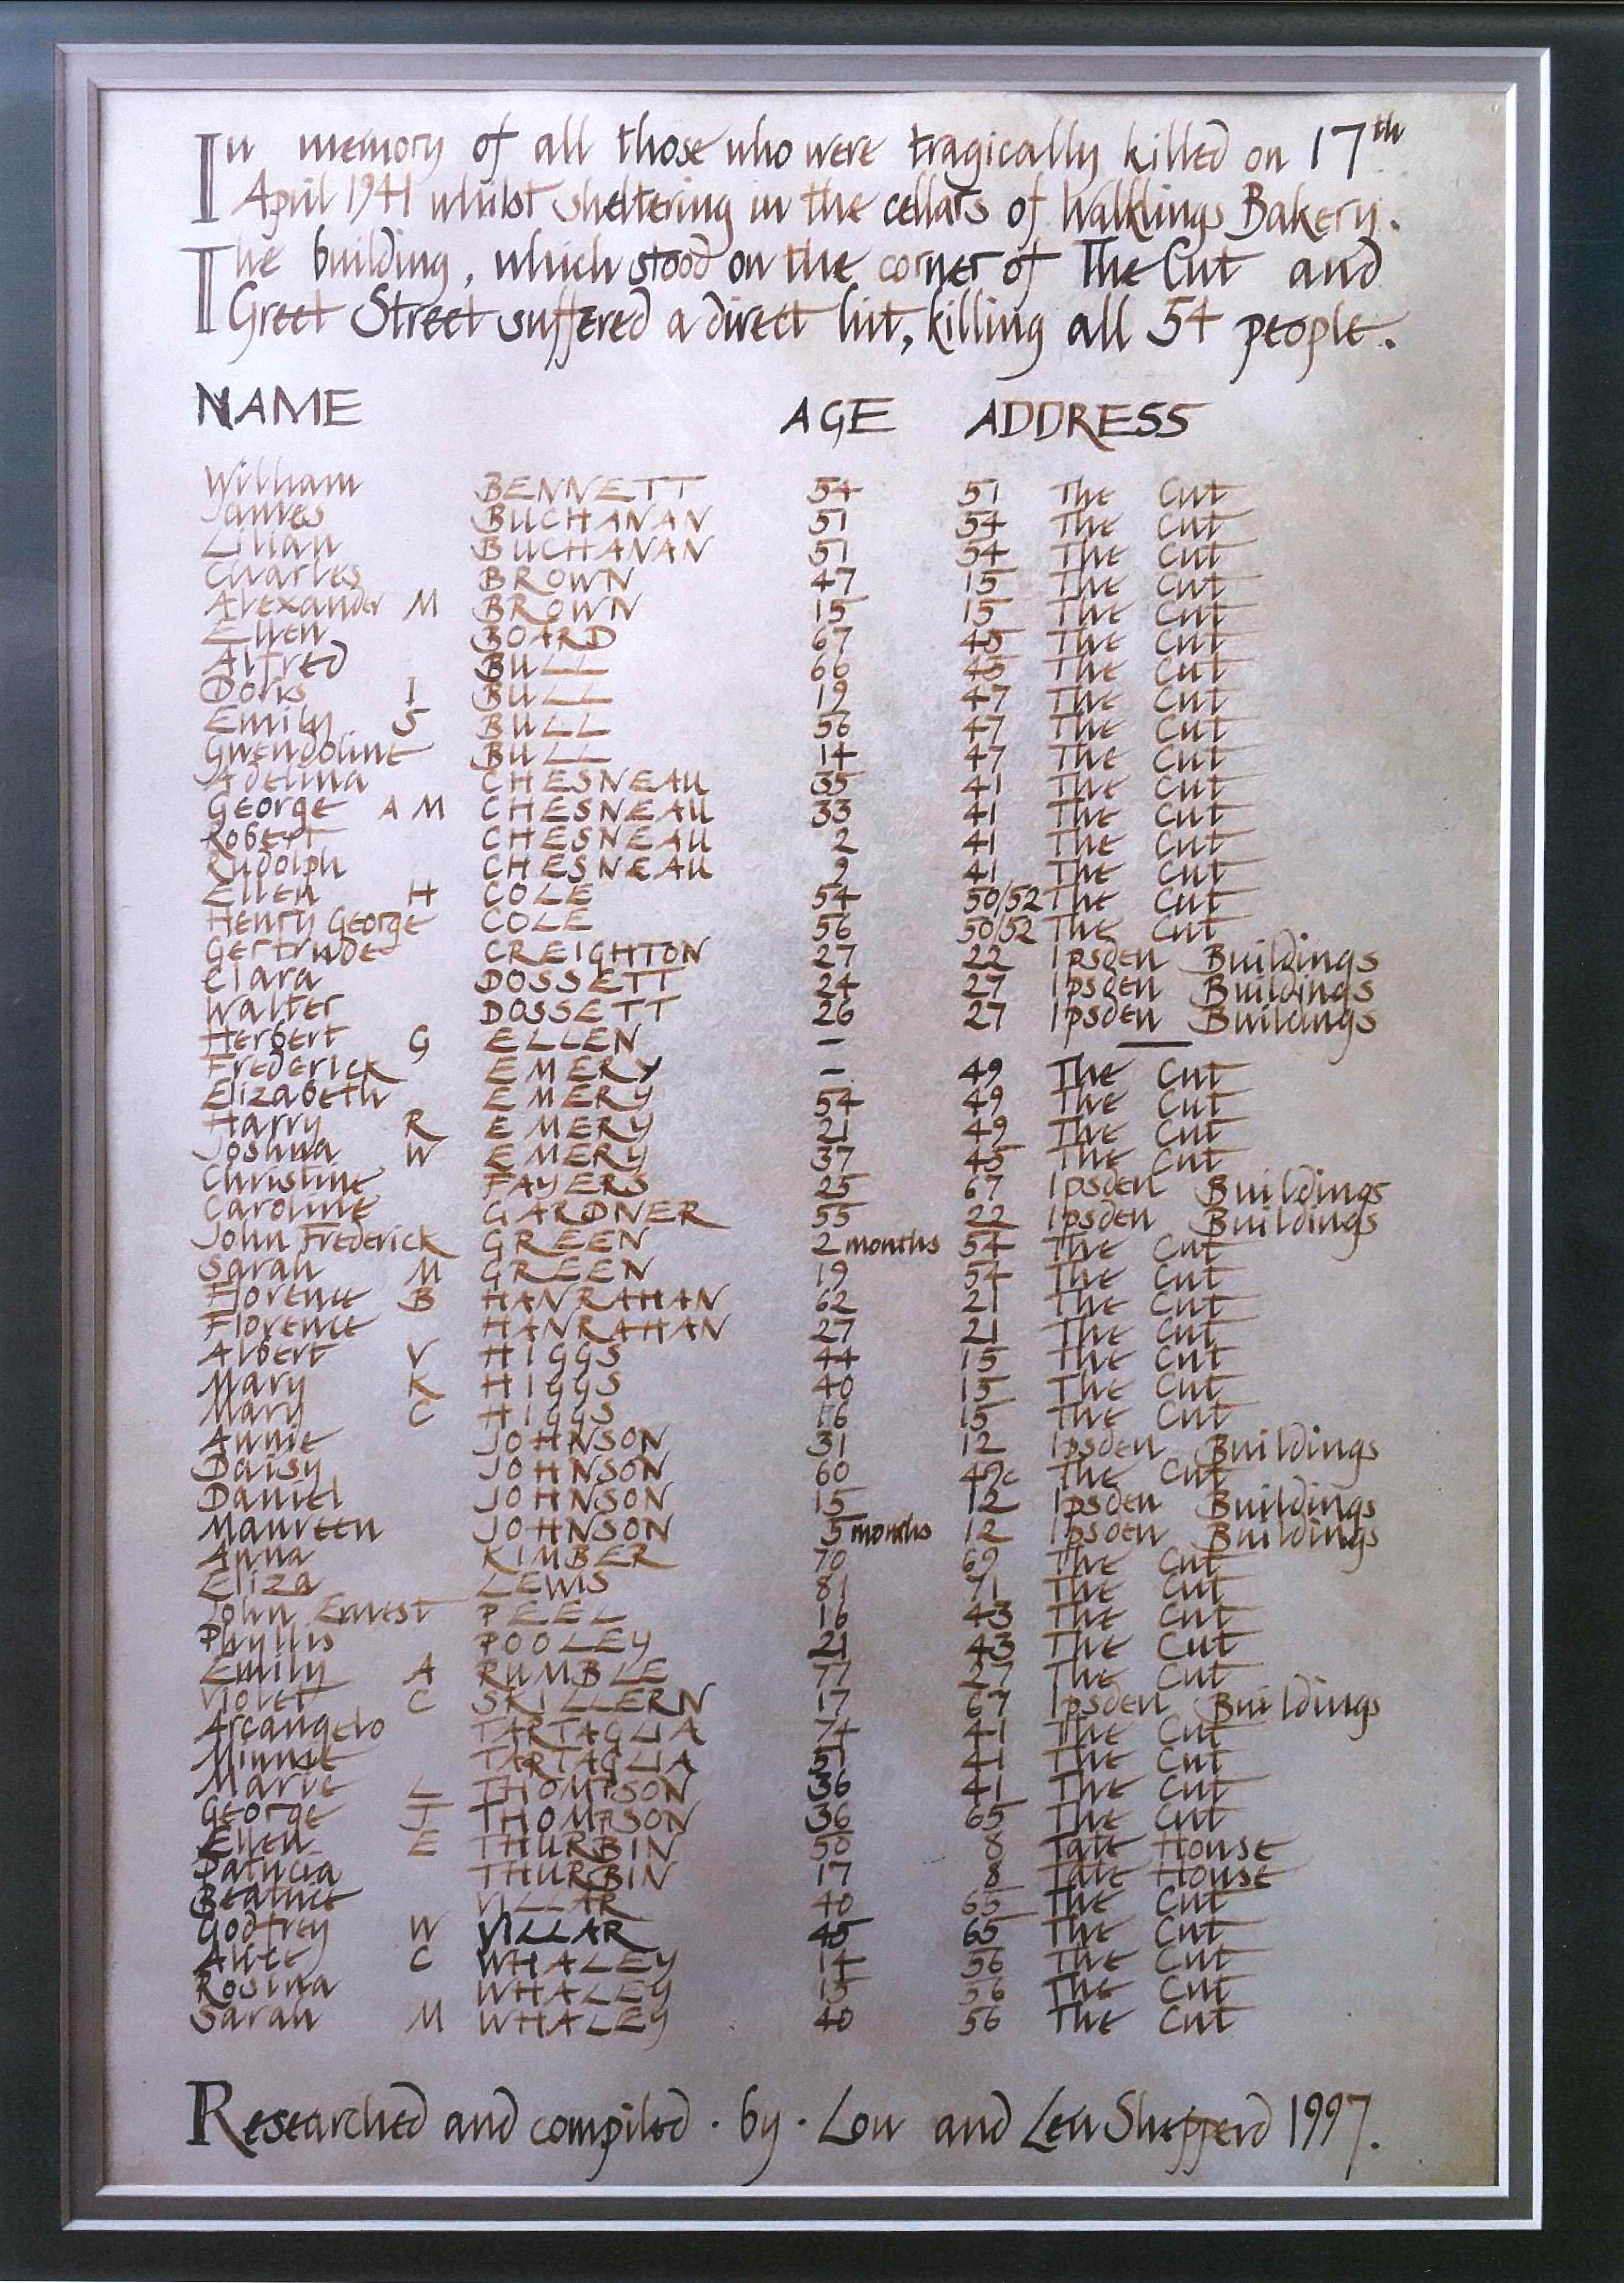 In memory of all those who were tragically killed on 17th
April 1941 whilst sheltering in the cellars of Walklings Bakery.
The building, which stood on the corner of The Cut and
Greet Street suffered a direct hit, killing all 54 people.
NAME AGE ADDRESS
William BENNETT 54 51 The Cut
James BUCHANAN 51 54 The Cut
Lilian BUCHANAN 51 54 The Cut
Charles BROWN 47 15 The Cut
Alexander M BROWN 15 15 The Cut
Ellen BOARD 67 45 The Cut
Alfred BULL 66 45 The Cut
Doris I BULL 19 47 The Cut
Emily S BULL 56 47 The Cut
Gwendoline BULL 14 47 The Cut
Adelina CHESNEAU 35 41 The Cut
George A M CHESNEAU 33 41 The Cut
Robert CHESNEAU 2 41 The Cut
Rudolph CHESNEAU 2 41 The Cut
Ellen H COLE 54 50/52 The Cut
Henry George COLE 56 50/52 The Cut
Gertrude CREIGHTON 27 22 Ipsden Buildings
Clara DOSSETT 24 27 Ipsden Buildings
Walter DOSSETT 26 27 Ipsden Buildings
Herbert G ELLEN - —
Frederick EMERY - 49 The Cut
Elizabeth EMERY 54 49 The Cut
Harry R EMERY 21 49 The Cut
Joshua W EMERY 37 45 The Cut
Christine FAYERS 25 67 Ipsden Buildings
Caroline GARDNER 55 22 Ipsden Buildings
John Frederick GREEN 2 months 54 The Cut
Sarah M GREEN 19 54 The Cut
Florence B HANRAHAN 62 21 The Cut
Florence HANRAHAN 27 21 The Cut
Albert V HIGGS 44 15 The Cut
Mary K HIGGS 40 15 The Cut
Mary C HIGGS 16 15 The Cut
Annie JOHNSON 31 12 Ipsden Buildings
Daisy JOHNSON 60 49c The Cut
Daniel JOHNSON 15 12 Ipsden Buildings
Maureen JOHNSON 5 months 12 Ipsden Buildings
Anna KIMBER 70 69 The Cut
Eliza LEWIS 81 71 The Cut
John Ernest PEEL 16 43 The Cut
Phyllis POOLEY 21 43 The Cut
Emily A RUMBLE 77 27 The Cut
Violet C SKILLERN 17 67 Ipsden Buildings
Arcangelo TARTAGLIA 74 41 The Cut
Minnie TARTAGLIA 51 41 The Cut
Marie L THOMPSON 36 41 The Cut
George J THOMPSON 36 65 The Cut
Ellen E THURBIN 50 8 Tait House
Patricia THURBIN 17 8 Tait House
Beatrice VILLAR 40 65 The Cut
Godfrey W VILLAR 45 65 The Cut
Alice C WHALEY 14 56 The Cut
Rosina WHALEY 15 56 The Cut
Sarah M WHALEY 40 56 The Cut
Researched and compiled · by · Lou and Len Shepperd 1997.